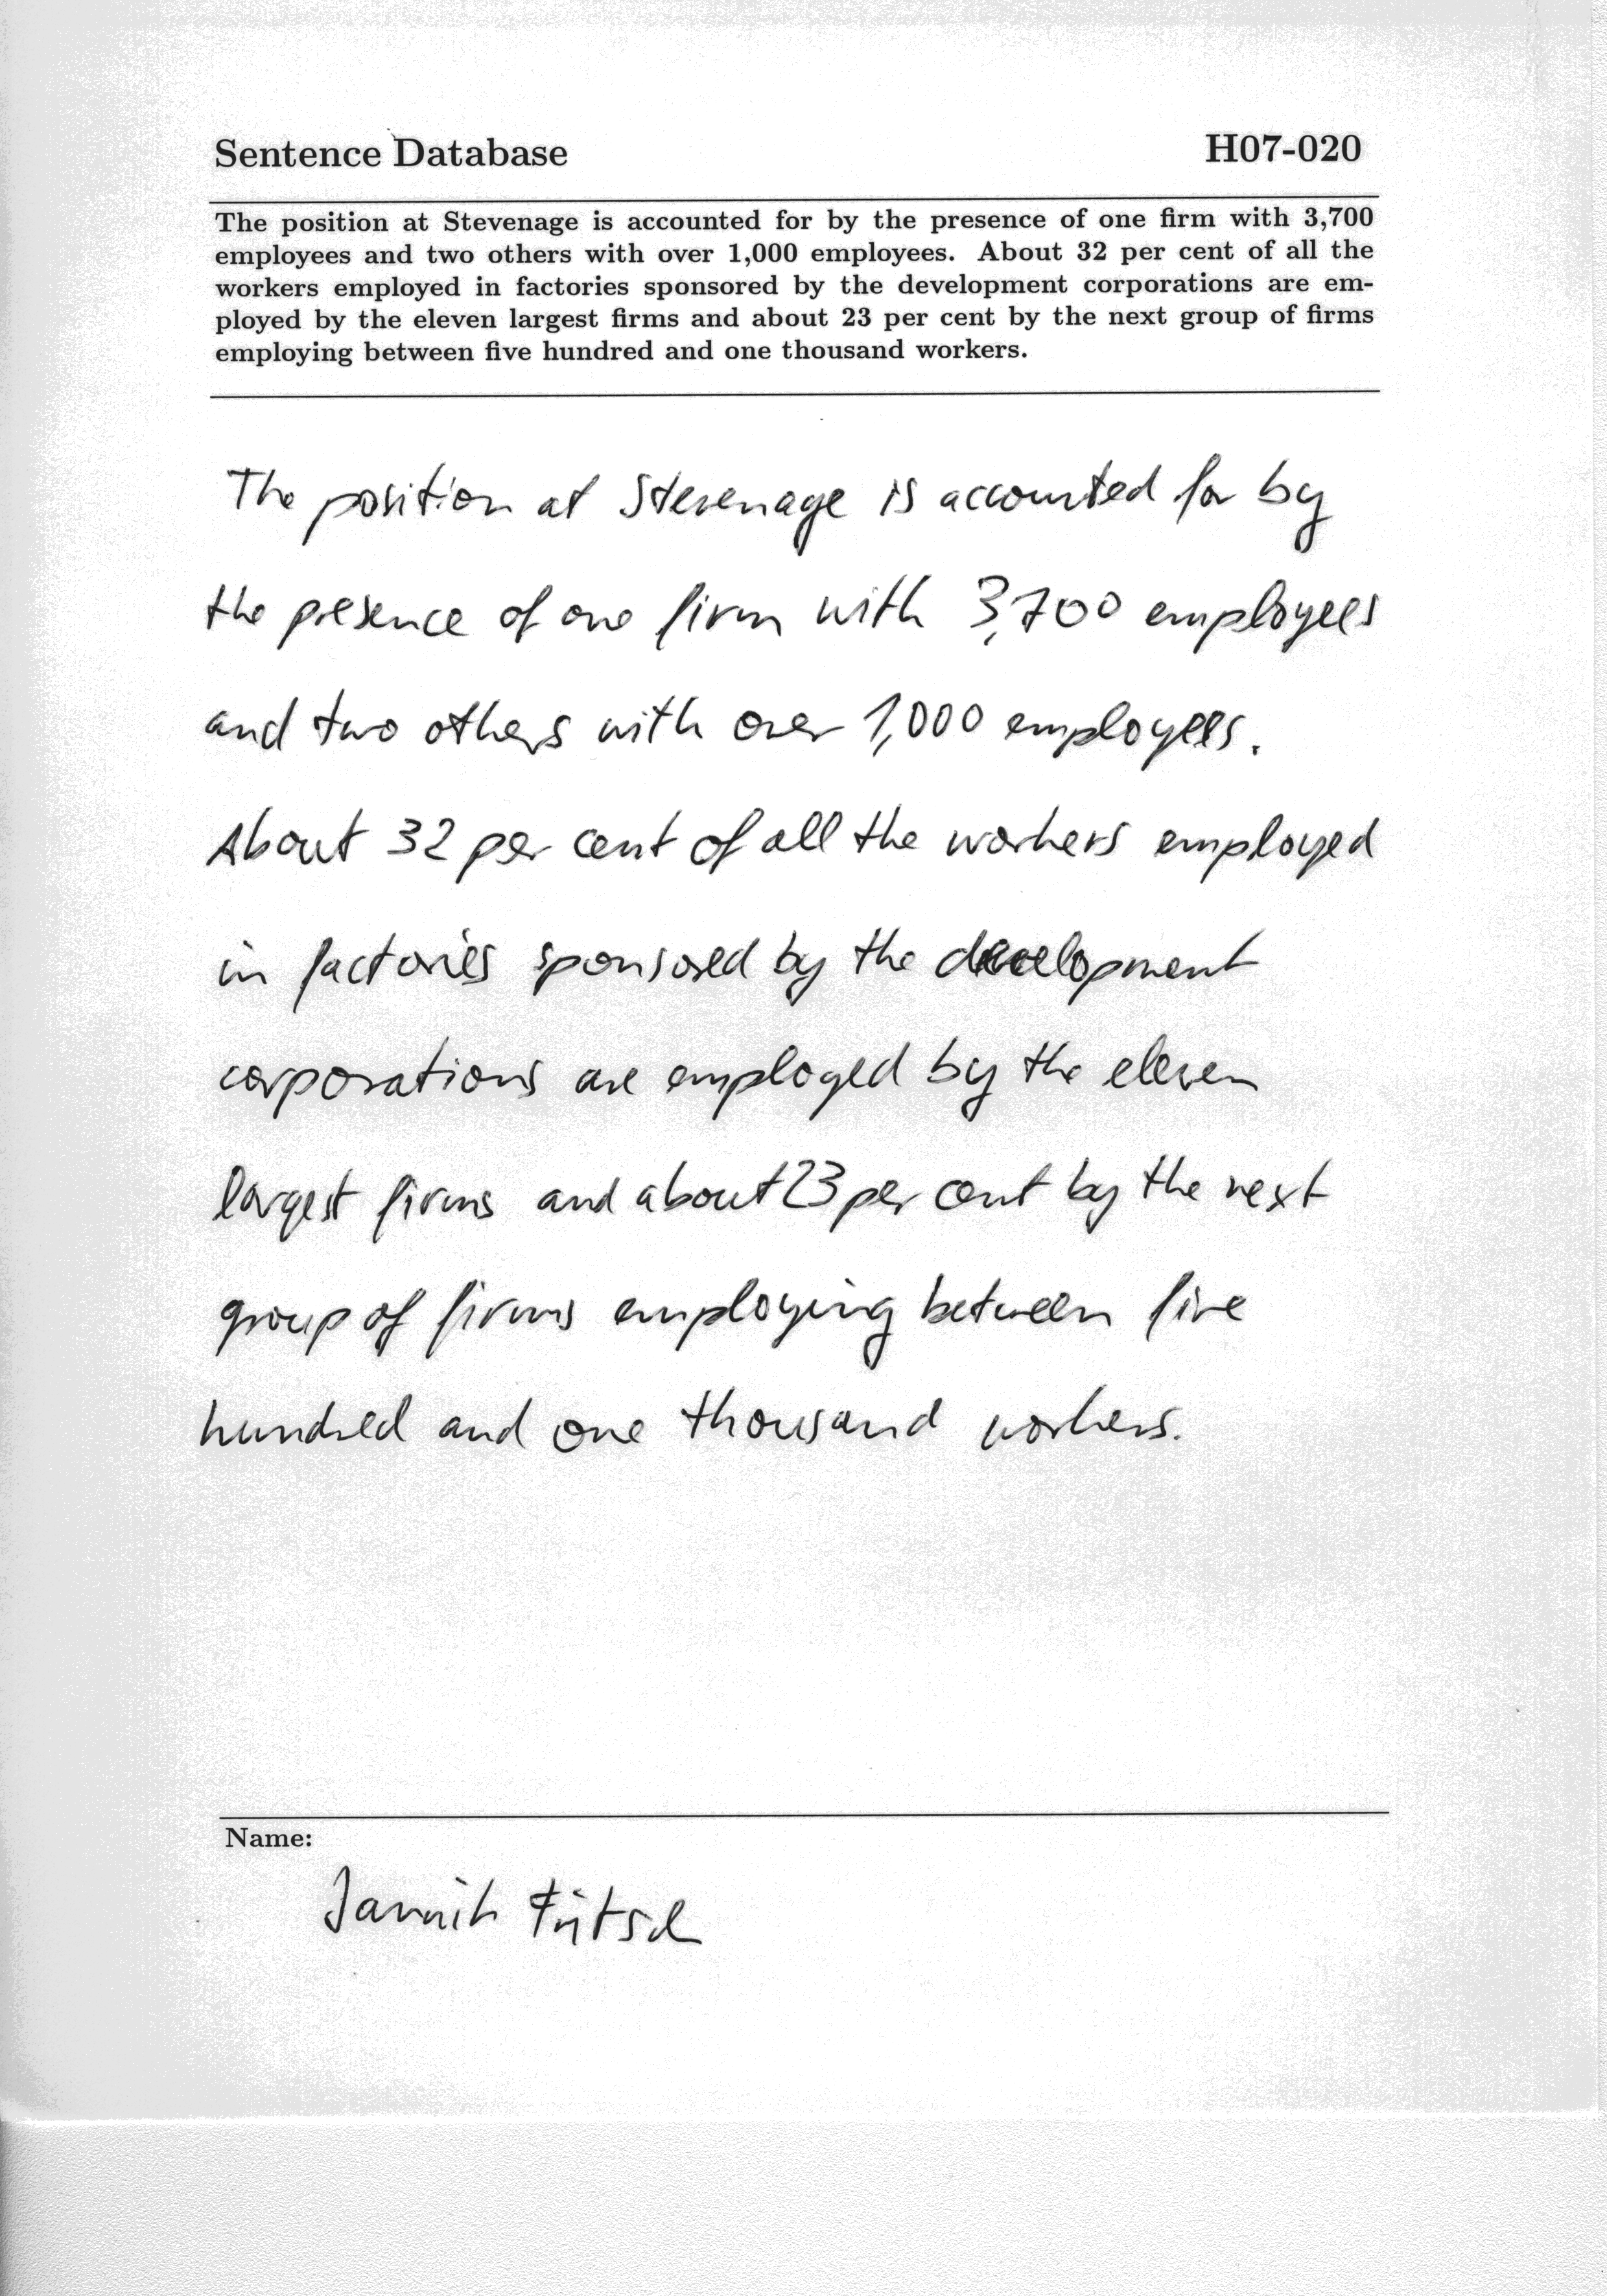 Sentence Database H07-020
The position at Stevenage is accounted for by the presence of one firm with 3,700
employees and two others with over 1,000 employees. About 32 per cent of all the
workers employed in factories sponsored by the development corporations are em-
ployed by the eleven largest firms and about 23 per cent by the next group of firms
employing between five hundred and one thousand workers.
The position at Stevenage is accounted for by
the presence of one firm with 3,700 employees
and two others with over 1,000 employees.
About 32 per cent of all the workers employed
in factories sponsored by the development
corporations are employed by the eleven
largest firms and about 23 per cent by the next
group of firms employing between five
hundred and one thousand workers.
Name: